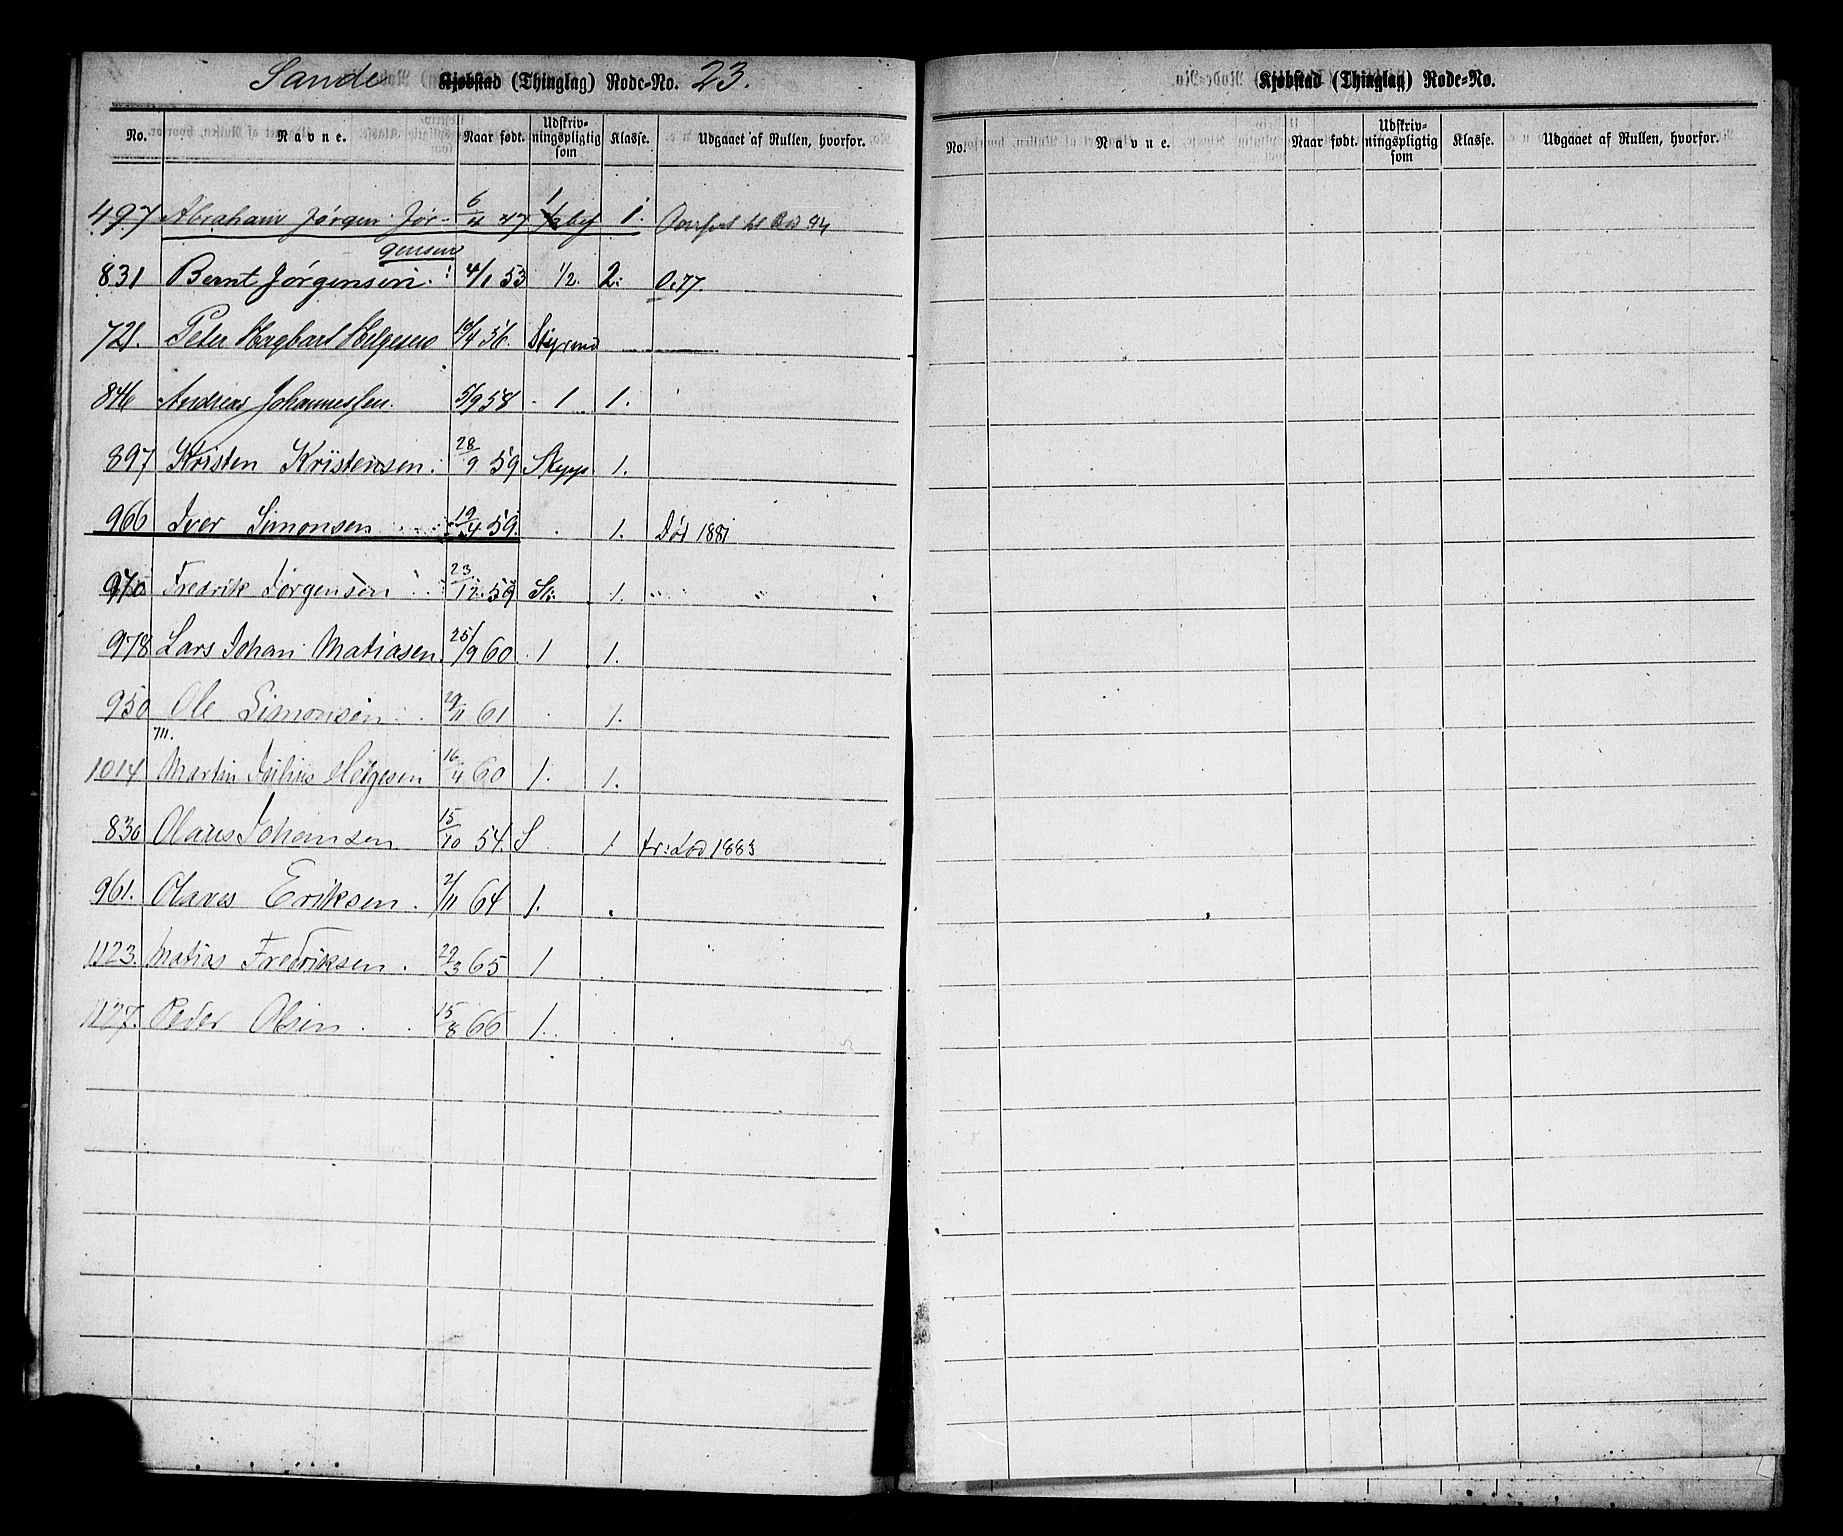 Sande Kjøbstad (Thinglag) Rode-No. 23.
No. Navne. Naar født. Udskriv-ningspligtig som Klasse. Udgaaet af Rullen, hvorfor.
497 Abraham Jørgen Jør- 6/4 47 1 1/2 bef 1.
gensen
831 Bernt Jørgensen. 4/1 53 1/2. 2. O. 77.
721. Peter Hagbart Helgesen 19/4 56. Styrmd
846 Andreas Johannessen. 5/9 58 1 1.
897 Kristen Kristensen. 28/9 59 Skipps. 1.
966 Iver Simonsen 19/4 59. 1. Død 1881
970 Fredrik Jørgensen 23/12 59 St: 1. " " "
978 Lars Johan Matiasen. 25/9 60. 1 1.
950 Ole Simonsen 29/11 61 1.
m.
1014 Martin Julius Helgesen 16/4 60 1. 1.
830 Olaus Johansen 15/10 54. S 1. fr: Lod 1883
961. Olaves Eriksen. 2/11 64 1.
1123. Matias Fredriksen. 29/3 65 1
1127. Peder Olsen 15/8 66 1.
Kjøbstad (Thinglag) Rode-No.
No. Navne. Naar født. Udskriv-ningspligtig som Klasse. Udgaaet af Rullen, hvorfor.